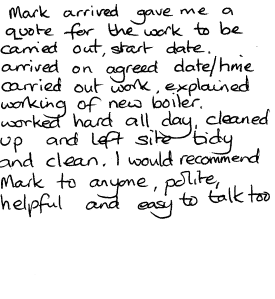 Mark arrived gave me a
quote for the work to be
carried out, start date.
arrived on agreed date/time
carried out work, explained
working of new boiler.
worked hard all day, cleaned
up and left site tidy
and clean. I would recommend
Mark to anyone, polite,
helpful and easy to talk too